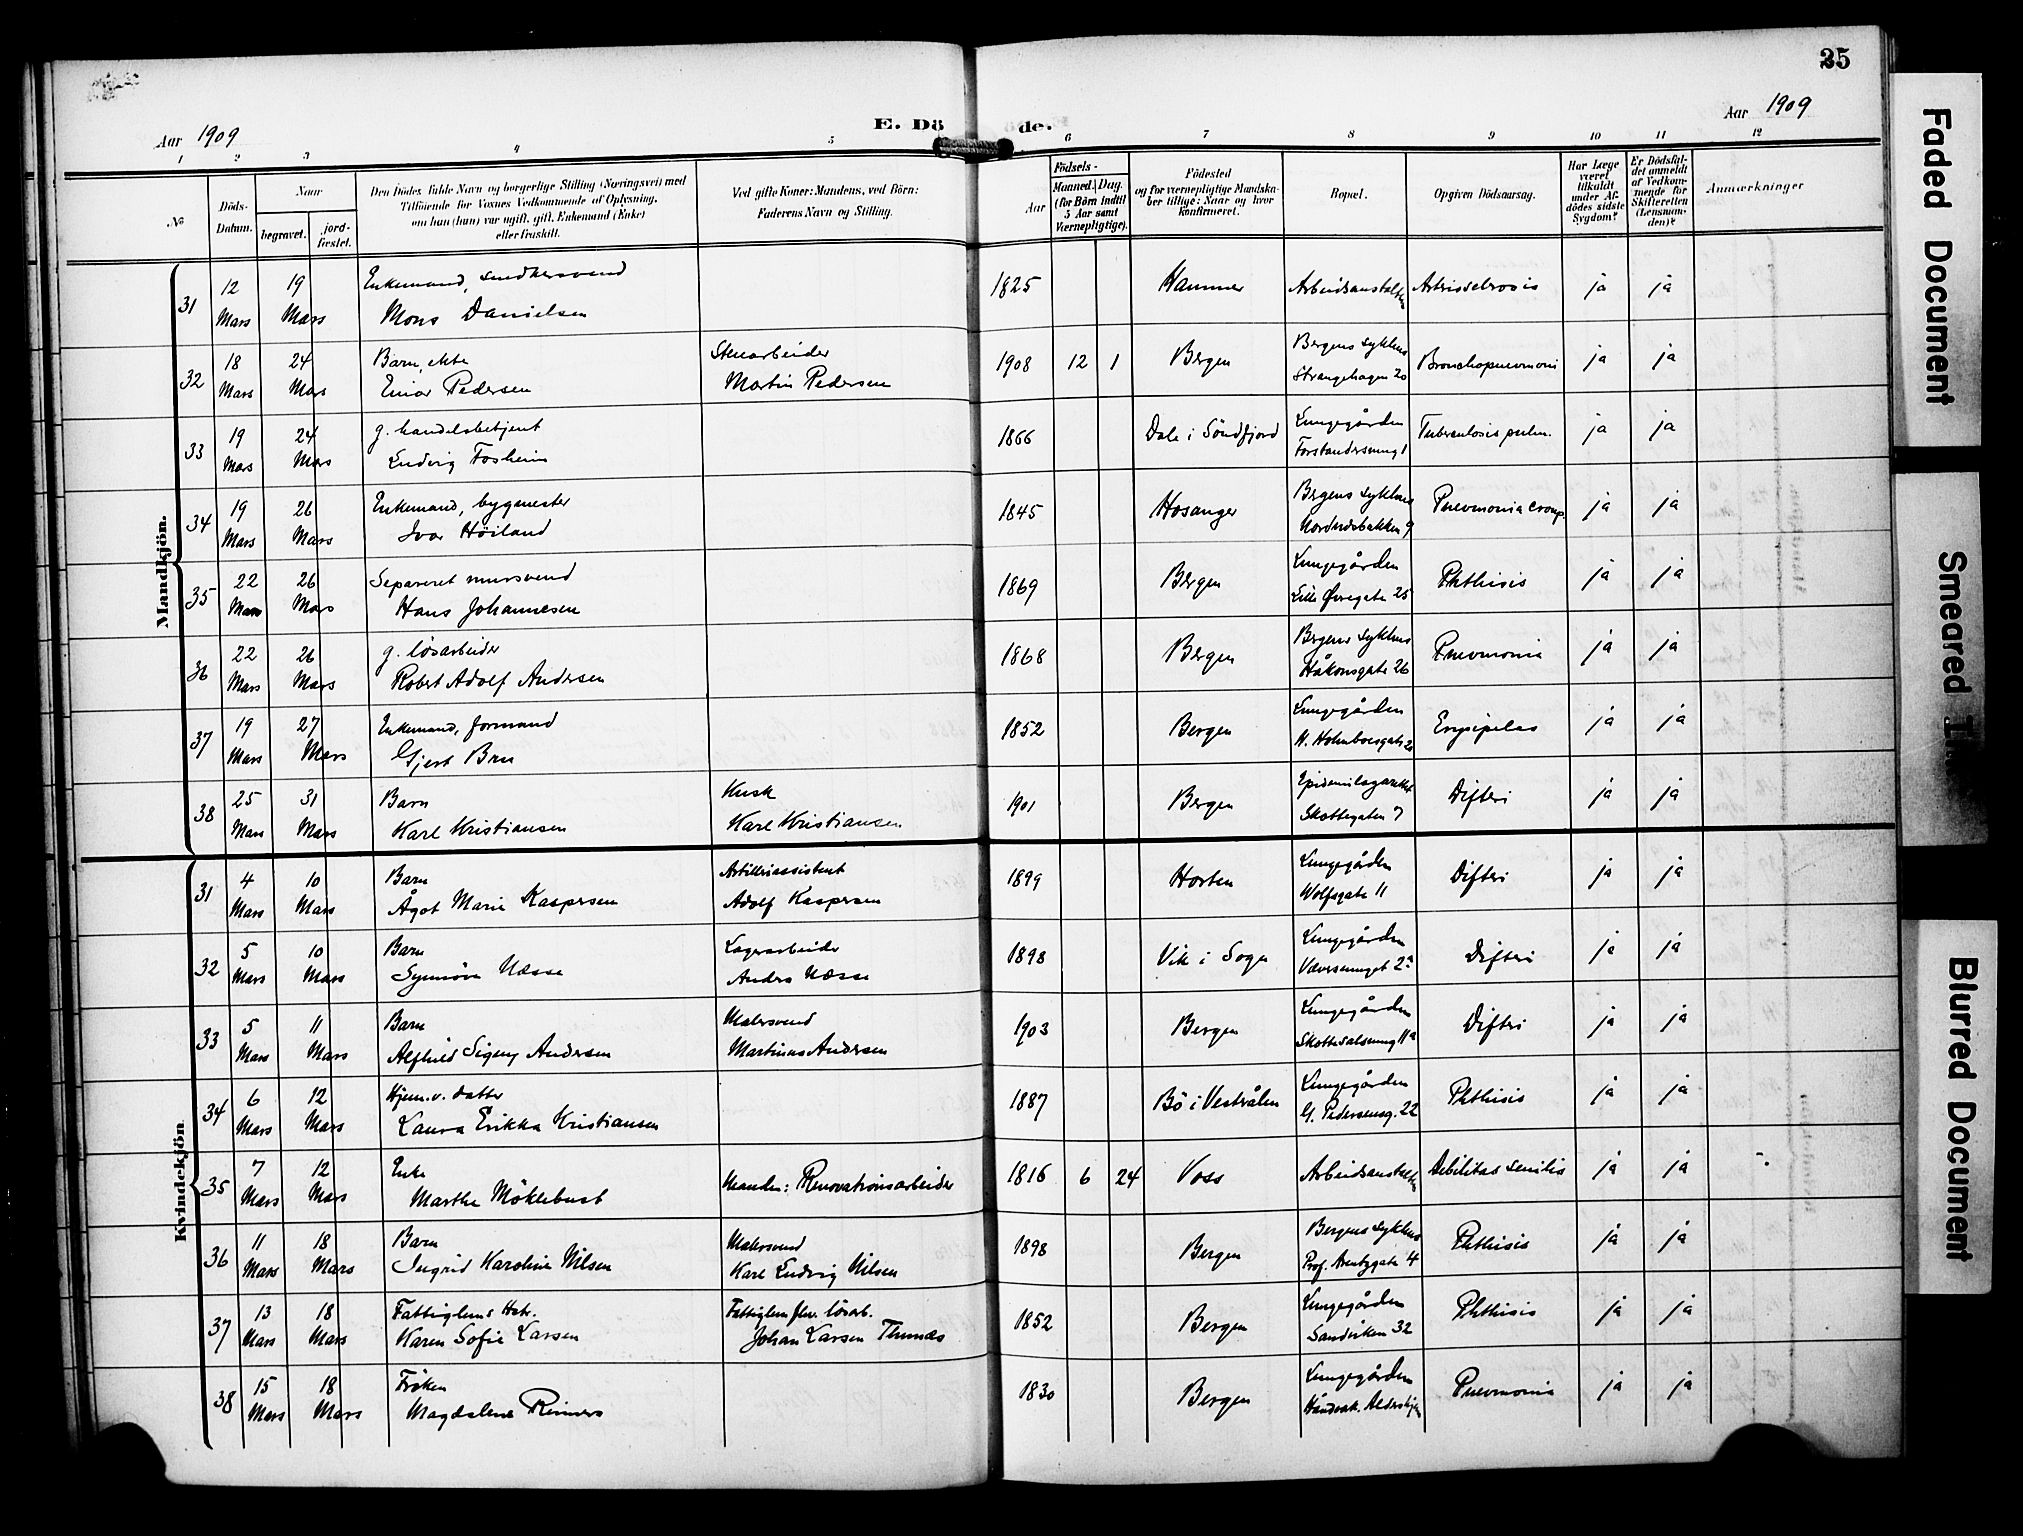 35
Aar 1909
E. Döde.
Aar 1909
1 2 3 4 5 6 7 8 9 10 11 12
№
Döds-Datum.
Naar
begravet.
jord-fæstet.
Den Dødes fulde Navn og borgerlige Stilling (Næringsvei) med
Tilföiende for Voxnes Vedkommende af Oplysning,
om han (hun) var ugift, gift, Enkemand (Enke)
eller fraskilt.
Ved gifte Koner: Mandens, ved Börn:
Faderens Navn og Stilling.
Födsels-
Aar
Maaned. Dag.
(for Börn indtil
5 Aar samt
Værnepligtige).
Födested
og for værnepligtige Mandska-
ber tillige: Naar og hvor
konfirmeret.
Bopæl.
Opgiven Dödsaarsag.
Har Læge
været
tilkaldt
under Af-
dödes sidste
Sygdom?
Er Dödsfal-
det anmeldt
af Vedkom-
mende for
Skifteretten
(Lensman-
den)?
Anmærkninger
Mandkjön.
31 12 Mars 19 Mars Enkemand, smedkersvend
Mons Danielsen 1825 Hammer Arbeidsanstalten Artriosclerosis ja ja
32 18 Mars 24 Mars Barn, ekte
Einar Pedersen Stenarbeider
Martin Pedersen 1908 12 1 Bergen Bergens sykehus
Strangehagen 20 Bronchopneumoni ja ja
33 19 Mars 24 Mars g. handelsbetjent
Ludvig Fosheim 1866 Dale i Söndfjord Lungegården
Forstandersmug 1 Tuberculosis pulm. ja ja
34 19 Mars 26 Mars Enkemand, bygmester
Ivar Höiland 1845 Hosanger Bergens sykehus
Nordnesbakken 9 Pneumonia croup. ja ja
35 22 Mars 26 Mars Separeret mursvend
Hans Johannesen 1869 Bergen Lungegården
Lille Øvregate 25 Phthisis ja ja
36 22 Mars 26 Mars g. lösarbeider
Robert Adolf Andersen 1868 Bergen Bergens sykehus
Håkonsgate 26 Pneumonia ja ja
37 19 Mars 27 Mars Enkemand, formand
Gjert Bru 1852 Bergen Lungegården
H. Holmboesgate Erysipelas ja ja
38 25 Mars 31 Mars Barn
Karl Kristiansen Kusk
Karl Kristiansen 1901 Bergen Epidemilazarettet
Skottegaten 7 Difteri ja ja
Kvindekjön.
31 4 Mars 10 Mars Barn
Ågot Marie Kaspersen Artilleriassistent
Adolf Kaspersen 1899 Horten Lungegården
Wolfsgate 11 Difteri ja ja
32 5 Mars 10 Mars Barn
Synnöve Næsse Lagerarbeider
Anders Næsse 1898 Vik i Sogn Lungegården
2a Difteri ja ja
33 5 Mars 11 Mars Barn
Alfhild Signy Andersen Malersvend
Martinus Andersen 1903 Bergen Lungegården
11a Difteri ja ja
34 6 Mars 12 Mars Hjem.v. datter
Laura Erikka Kristiansen 1887 Bö i Vestrålen Lungegården
G. Pedersensg. 22 Phthisis ja ja
35 7 Mars 12 Mars Enke
Marthe Möklebust Manden: Renovationsarbeider 1816 6 24 Voss Arbeidsanstalten Debilitas senilis ja ja
36 11 Mars 18 Mars Barn
Ingrid Karoline Nilsen Malersvend
Karl Ludvig Nilsen 1898 Bergen Bergens sykehus
Prof. Arentzgate 4 Phthisis ja ja
37 13 Mars 18 Mars Fattiglems Hstr.
Karen Sofie Larsen Fattiglem fhv. lösarb.
Johan Larsen Thunæs 1852 Bergen Lungegården
Sandviken 32 Phthisis ja ja
38 15 Mars 18 Mars Fröken
Magdalene Reimers 1830 Bergen Lungegården
Håndverk. Aldershjem Pneumonia ja ja
Faded Document
Smeared
Blurred Document